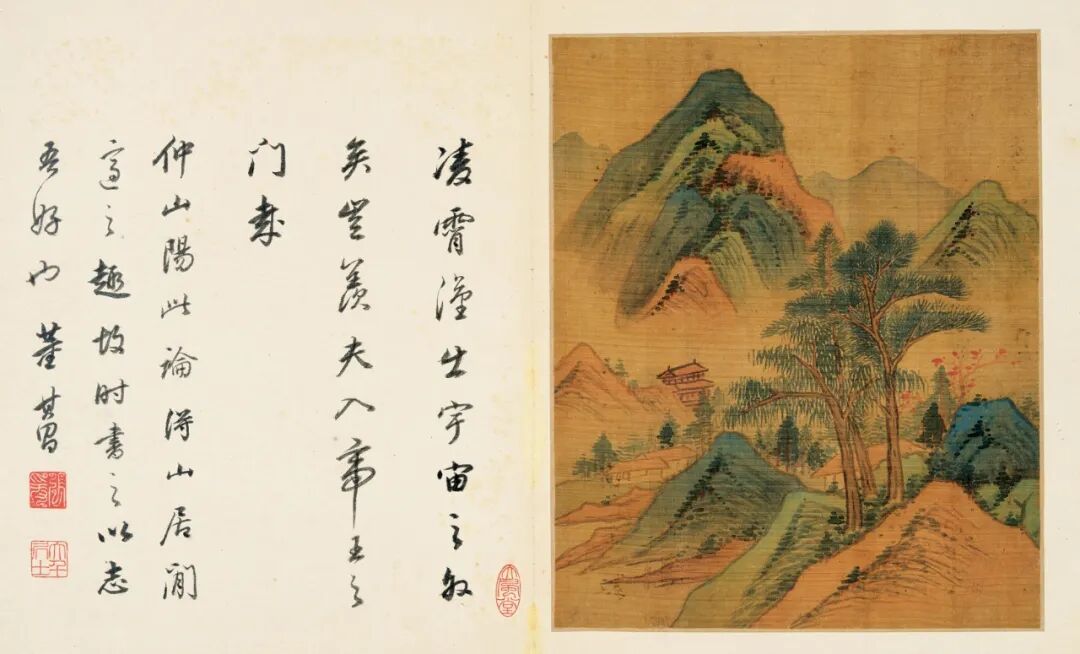 凌霄漢出宇宙之外
矣豈羡夫入帝王之
门哉
仲山陽此論得山居閒
適之趣故时書之以志
吾好也 董其昌
大風堂